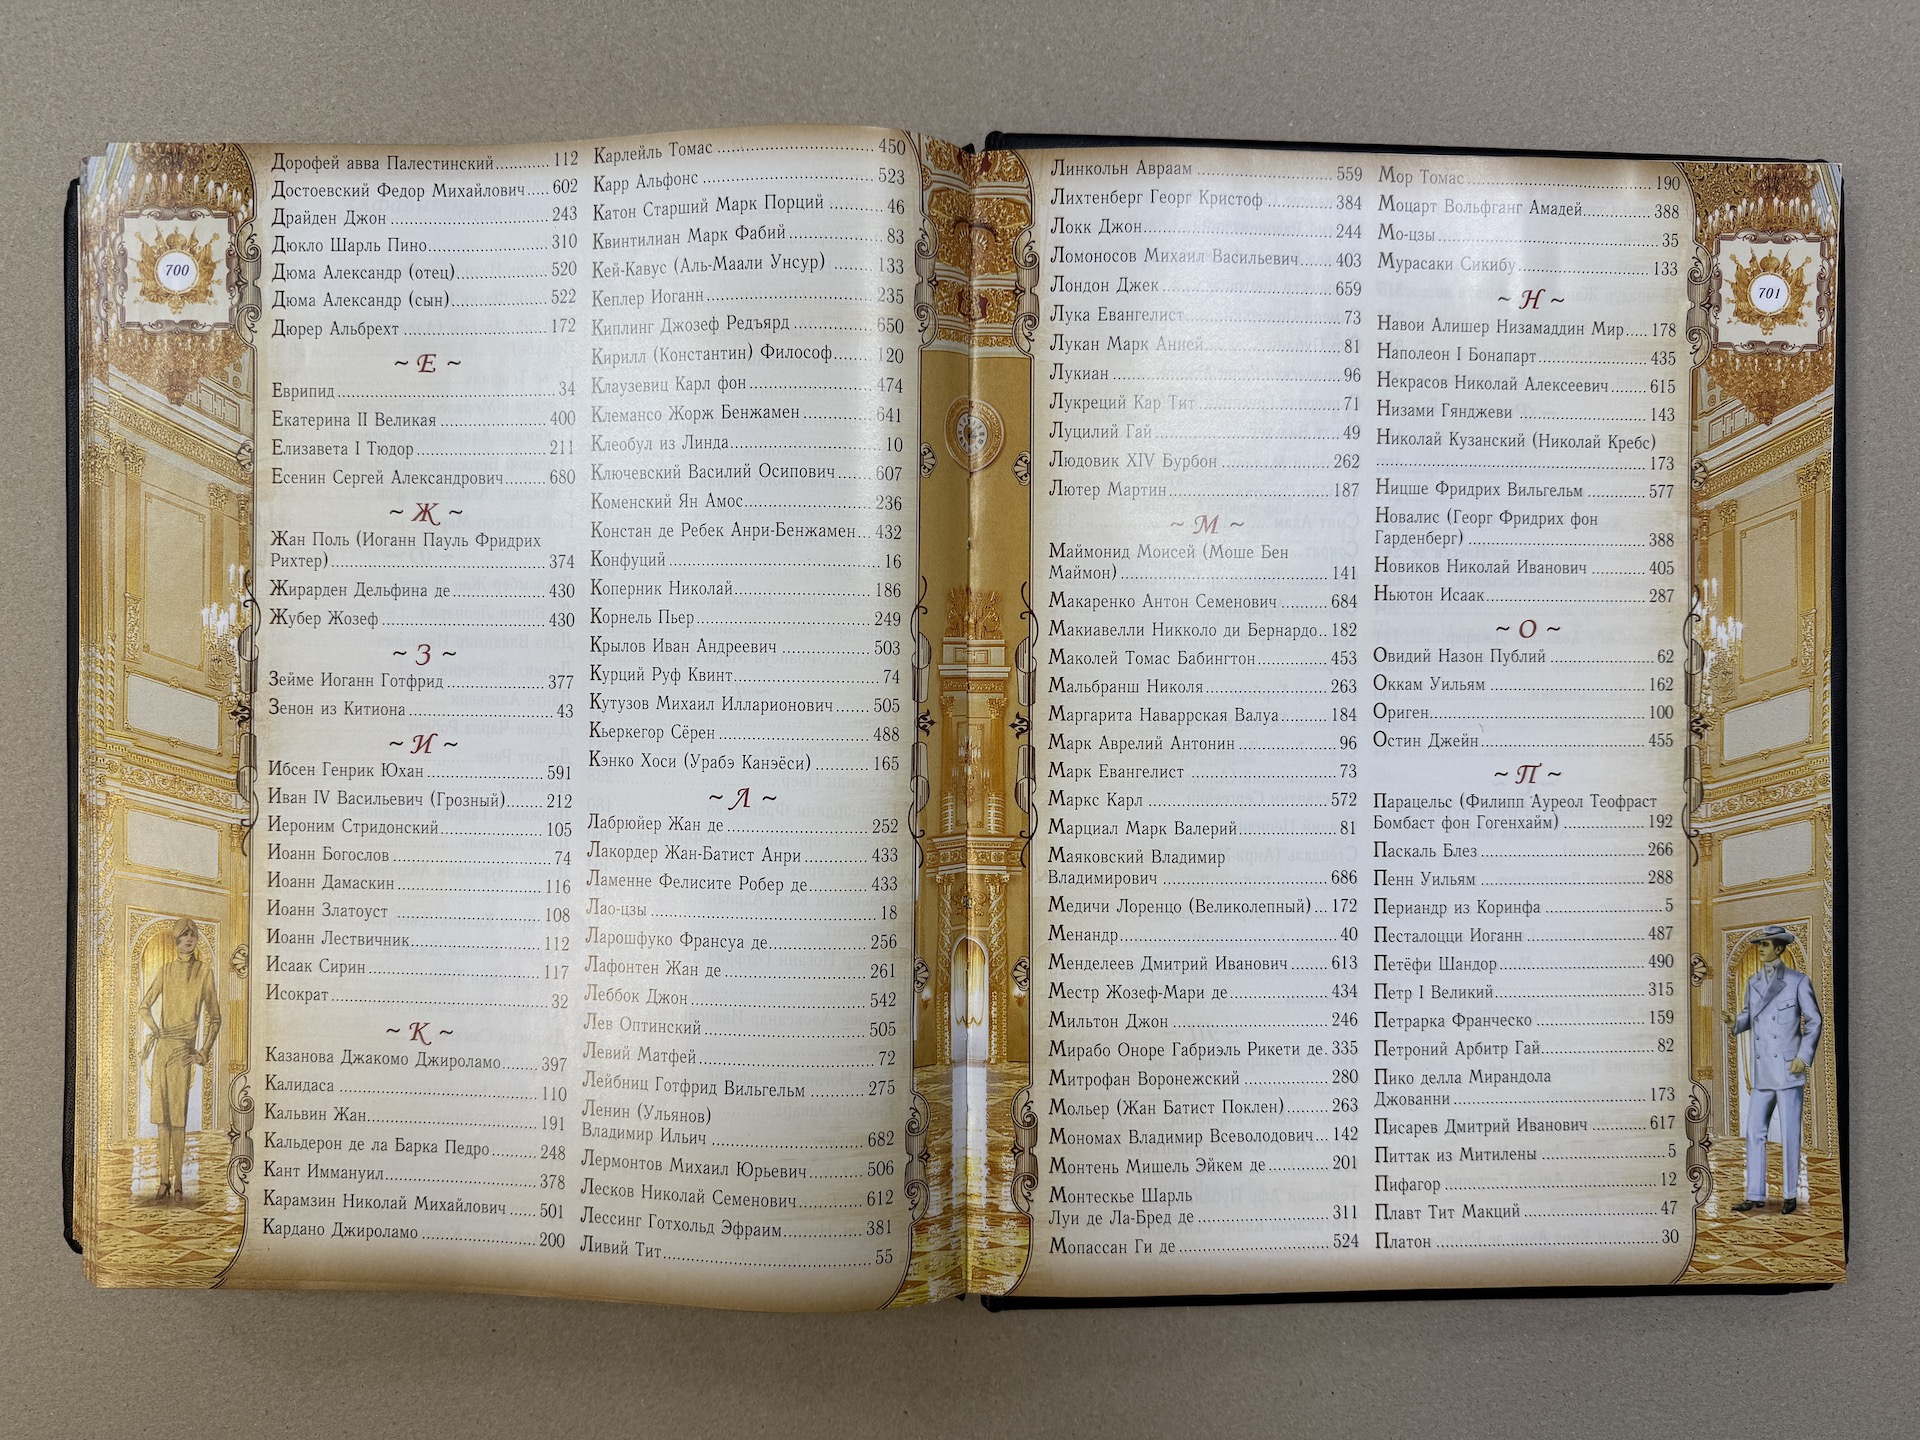 700
Дорофей авва Палестинский........... 112
Достоевский Федор Михайлович..... 602
Драйден Джон ............................... 243
Дюкло Шарль Пино........................ 310
Дюма Александр (отец)................... 520
Дюма Александр (сын).................... 522
Дюрер Альбрехт ............................ 172
~ Е ~
Еврипид ........................................ 34
Екатерина II Великая .................... 400
Елизавета I Тюдор......................... 211
Есенин Сергей Александрович......... 680
~ Ж ~
Жан Поль (Иоганн Пауль Фридрих
Рихтер)......................................... 374
Жирарден Дельфина де.................. 430
Жубер Жозеф ................................ 430
~ З ~
Зейме Иоганн Готфрид ................... 377
Зенон из Китиона ........................... 43
~ И ~
Ибсен Генрик Юхан ....................... 591
Иван IV Васильевич (Грозный)....... 212
Иероним Стридонский.................... 105
Иоанн Богослов .............................. 74
Иоанн Дамаскин ............................ 116
Иоанн Златоуст ............................. 108
Иоанн Лествичник......................... 112
Исаак Сирин ................................. 117
Исократ ......................................... 32
~ К ~
Казанова Джакомо Джироламо........ 397
Калидаса ...................................... 110
Кальвин Жан................................. 191
Кальдерон де ла Барка Педро.......... 248
Кант Иммануил.............................. 378
Карамзин Николай Михайлович ..... 501
Кардано Джироламо ...................... 200
Карлейль Томас ............................ 450
Карр Альфонс ............................... 523
Катон Старший Марк Порций ......... 46
Квинтилиан Марк Фабий................. 83
Кей-Кавус (Аль-Маали Унсур) ....... 133
Кеплер Иоганн .............................. 235
Киплинг Джозеф Редъярд .............. 650
Кирилл (Константин) Философ....... 120
Клаузевиц Карл фон ..................... 474
Клемансо Жорж Бенжамен ............. 641
Клеобул из Линда........................... 10
Ключевский Василий Осипович ...... 607
Коменский Ян Амос....................... 236
Констан де Ребек Анри-Бенжамен... 432
Конфуций ..................................... 16
Коперник Николай........................ 186
Корнель Пьер................................ 249
Крылов Иван Андреевич ............... 503
Курций Руф Квинт......................... 74
Кутузов Михаил Илларионович...... 505
Кьеркегор Сёрен ........................... 488
Кэнко Хоси (Урабэ Канэёси) ......... 165
~ Л ~
Лабрюйер Жан де ......................... 252
Лакордер Жан-Батист Анри ........... 433
Ламенне Фелисите Робер де............ 433
Лао-цзы ........................................ 18
Ларошфуко Франсуа де.................. 256
Лафонтен Жан де .......................... 261
Леббок Джон ................................ 542
Лев Оптинский ............................. 505
Левий Матфей ............................... 72
Лейбниц Готфрид Вильгельм ......... 275
Ленин (Ульянов)
Владимир Ильич ........................... 682
Лермонтов Михаил Юрьевич.......... 506
Лесков Николай Семенович............ 612
Лессинг Готхольд Эфраим.............. 381
Ливий Тит..................................... 55
Линкольн Авраам ......................... 559
Лихтенберг Георг Кристоф ............ 384
Локк Джон................................... 244
Ломоносов Михаил Васильевич...... 403
Лондон Джек ................................ 659
Лука Евангелист............................ 73
Лукан Марк Анней......................... 81
Лукиан ......................................... 96
Лукреций Кар Тит ......................... 71
Луцилий Гай ................................. 49
Людовик XIV Бурбон .................... 262
Лютер Мартин............................... 187
~ М ~
Маймонид Моисей (Моше Бен
Маймон) ...................................... 141
Макаренко Антон Семенович ......... 684
Макиавелли Никколо ди Бернардо.. 182
Маколей Томас Бабингтон.............. 453
Мальбранш Николя........................ 263
Маргарита Наваррская Валуа......... 184
Марк Аврелий Антонин .................. 96
Марк Евангелист ........................... 73
Маркс Карл .................................. 572
Марциал Марк Валерий.................. 81
Маяковский Владимир
Владимирович .............................. 686
Медичи Лоренцо (Великолепный)... 172
Менандр........................................ 40
Менделеев Дмитрий Иванович ....... 613
Местр Жозеф-Мари де.................... 434
Мильтон Джон .............................. 246
Мирабо Оноре Габриэль Рикети де. 335
Митрофан Воронежский ................ 280
Мольер (Жан Батист Поклен)......... 263
Мономах Владимир Всеволодович... 142
Монтень Мишель Эйкем де............. 201
Монтескье Шарль
Луи де Ла-Бред де ........................ 311
Мопассан Ги де ............................. 524
Мор Томас.................................... 190
Моцарт Вольфганг Амадей............. 388
Мо-цзы ......................................... 35
Мурасаки Сикибу.......................... 133
~ Н ~
Навои Алишер Низамаддин Мир..... 178
Наполеон I Бонапарт..................... 435
Некрасов Николай Алексеевич ....... 615
Низами Гянджеви .......................... 143
Николай Кузанский (Николай Кребс)
.................................................... 173
Ницше Фридрих Вильгельм ........... 577
Новалис (Георг Фридрих фон
Гарденберг) .................................. 388
Новиков Николай Иванович .......... 405
Ньютон Исаак............................... 287
~ О ~
Овидий Назон Публий ................... 62
Оккам Уильям .............................. 162
Ориген......................................... 100
Остин Джейн ................................ 455
~ П ~
Парацельс (Филипп Ауреол Теофраст
Бомбаст фон Гогенхайм) ............... 192
Паскаль Блез ................................ 266
Пенн Уильям ................................ 288
Периандр из Коринфа .................... 5
Песталоцци Иоганн ....................... 487
Петёфи Шандор............................. 490
Петр I Великий.............................. 315
Петрарка Франческо ..................... 159
Петроний Арбитр Гай..................... 82
Пико делла Мирандола
Джованни ..................................... 173
Писарев Дмитрий Иванович ........... 617
Питтак из Митилены ...................... 5
Пифагор ....................................... 12
Плавт Тит Макций ......................... 47
Платон ......................................... 30
701